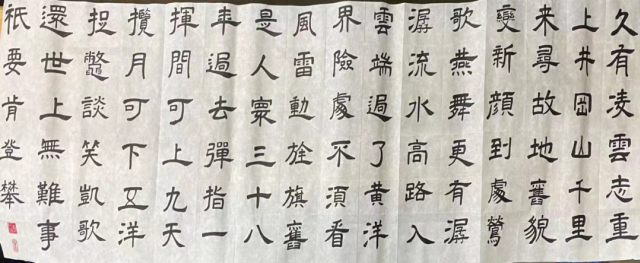 久有凌雲志重
上井岡山千里
来尋故地舊貌
變新顔到處鶯
歌燕舞更有潺
潺流水高路入
雲端過了黄洋
界險處不須看
風雷動旌旗奮
是人寰三十八
年過去彈指一
揮間可上九天
攬月可下五洋
捉鱉談笑凱歌
還世上無難事
祇要肯登攀